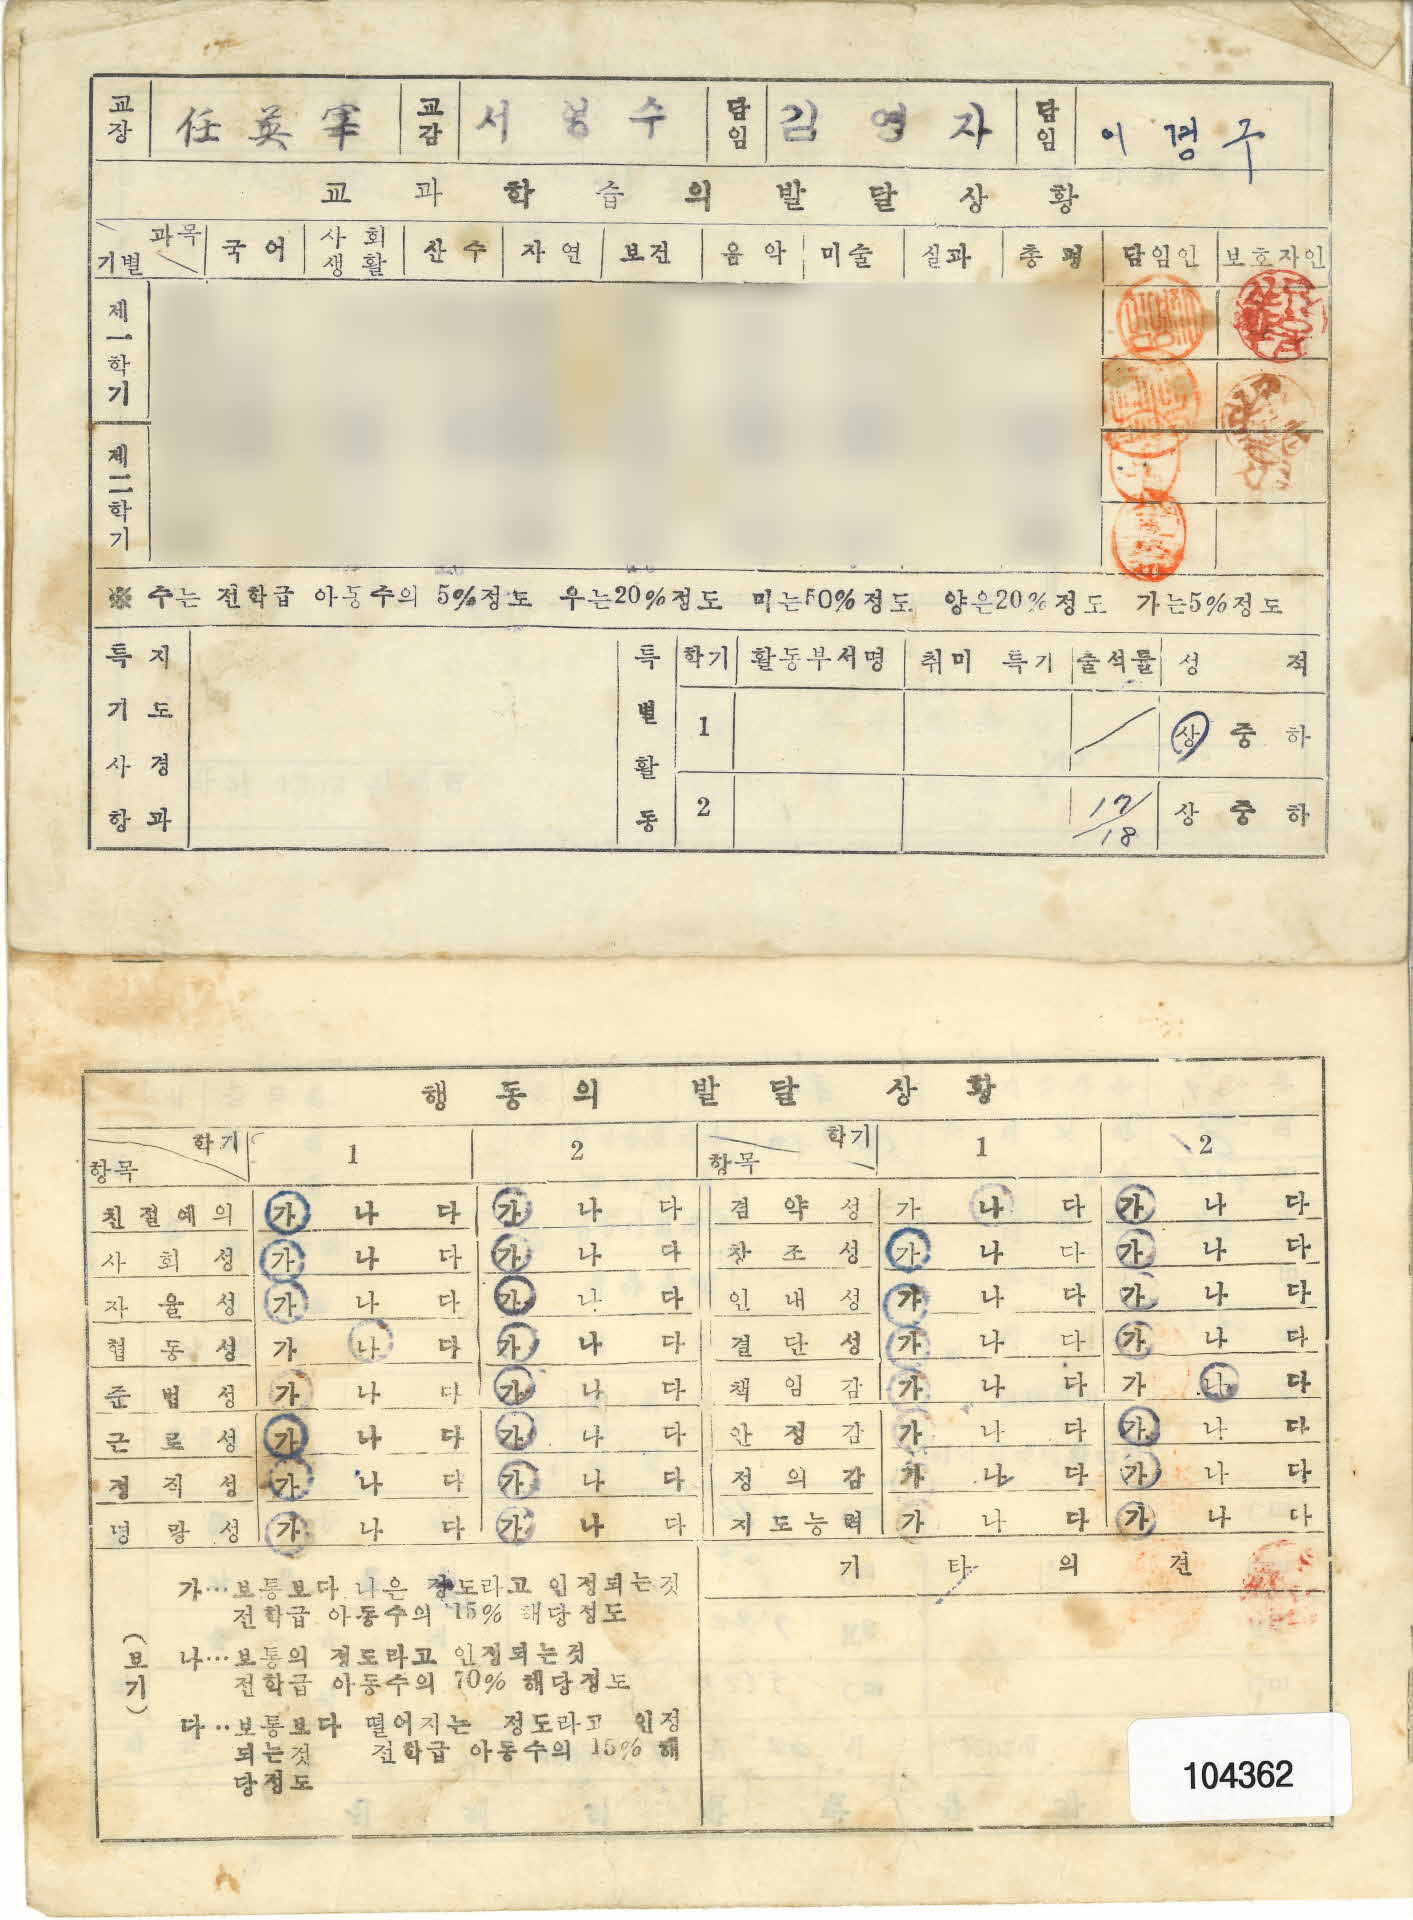 교장 任英宰 교감 서봉수 담임 김영자 담임 이경구
교과학습의 발달상황
과목 기별 국어 사회생활 산수 자연 보건 음악 미술 실과 총평 담임인 보호자인
제一학기
제二학기
※ 수는 전학급 아동수의 5%정도 우는20%정도 미는50%정도 양은20%정도 가는5%정도
특기사항 지도경과 특별활동 학기 활동부서명 취미 특기 출석률 성적
1 상 중 하
2 17/18 상 중 하
행동의 발달상황
학기 항목 1 2 학기 항목 1 2
친절예의 가 나 다 가 나 다 검약성 가 나 다 가 나 다
사회성 가 나 다 가 나 다 창조성 가 나 다 가 나 다
자율성 가 나 다 가 나 다 인내성 가 나 다 가 나 다
협동성 가 나 다 가 나 다 결단성 가 나 다 가 나 다
준법성 가 나 다 가 나 다 책임감 가 나 다 가 나 다
근로성 가 나 다 가 나 다 안정감 가 나 다 가 나 다
정직성 가 나 다 가 나 다 정의감 가 나 다 가 나 다
명랑성 가 나 다 가 나 다 지도능력 가 나 다 가 나 다
기타의견
(보기)
가…보통보다 나은 정도라고 인정되는것
전학급 아동수의 15% 해당정도
나…보통의 정도라고 인정되는것
전학급 아동수의 70% 해당정도
다‥보통보다 떨어지는 정도라고 인정
되는것 전학급 아동수의 15% 해
당정도
104362